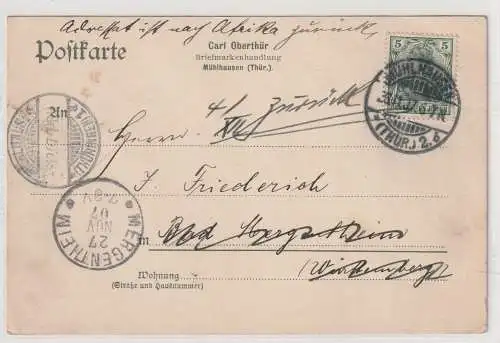 Adressat ist nach Afrika zurück,
Postkarte
Carl Oberthür
Briefmarkenhandlung
Mühlhausen (Thür.)
5 5
(THÜR.) 2. d
An
4/ Zurück
Herrn
J. Friederich
in
Bad Mergentheim
(Württemberg)
MERGENTHEIM
27 NOV 07
Wohnung
(Straße und Hausnummer)